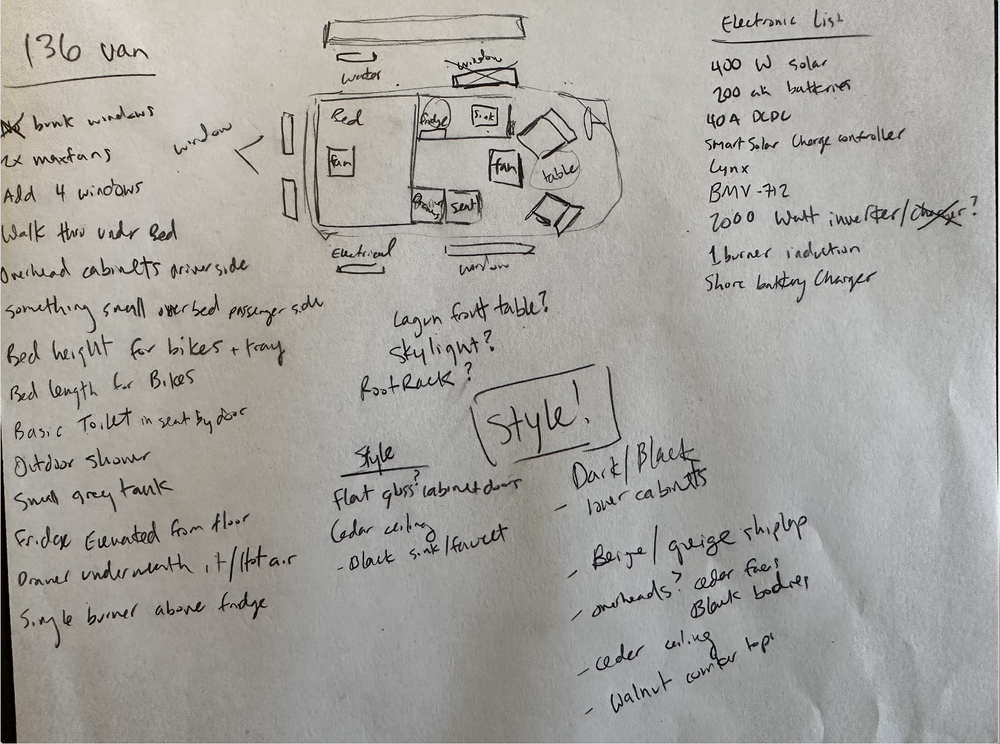 136 van
bunk windows
2x maxfans
Add 4 windows
Walk thru under Bed
Overhead cabinets driverside
something small overbed passenger side
Bed height for bikes + tray
Bed length for Bikes
Basic Toilet in seat by door
Outdoor shower
Small grey tank
Fridge Elevated from floor
underneath it/Hot air
Single burner above fridge
water
window
window
Bed
Fridge
Sink
fan
fan
table
seat
Electrical
window
Lagun front table?
Skylight?
Roof Rack?
Style!
Style
Flat gloss? cabinet doors
Cedar ceiling
- Black sink/faucet
Dark/Black
- lower cabinets
- Beige/greige shiplap
- overheads? ceder faces
Black bodies
- ceder ceiling
- Walnut counter tops
Electronic List
400 W solar
200 ah batteries
40A DCDC
Smart Solar Charge controller
Lynx
BMV-712
2000 Watt inverter/charger?
1 burner induction
Shore battery Charger